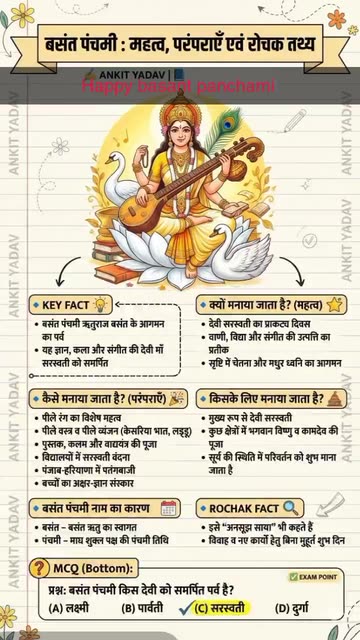 बसंत पंचमी : महत्व, परंपराएँ एवं रोचक तथ्य
ANKIT YADAV |
Happy basant panchami
KEY FACT
• बसंत पंचमी ऋतुराज बसंत के आगमन
का पर्व
• यह ज्ञान, कला और संगीत की देवी माँ
सरस्वती को समर्पित
क्यों मनाया जाता है? (महत्व)
• देवी सरस्वती का प्राकट्य दिवस
• वाणी, विद्या और संगीत की उत्पत्ति का
प्रतीक
• सृष्टि में चेतना और मधुर ध्वनि का आगमन
कैसे मनाया जाता है? (परंपराएँ)
• पीले रंग का विशेष महत्व
• पीले वस्त्र व पीले व्यंजन (केसरिया भात, लड्डू)
• पुस्तक, कलम और वाद्ययंत्र की
पूजा
• विद्यालयों में सरस्वती वंदना
• पंजाब-हरियाणा में पतंगबाजी
• बच्चों का अक्षर-ज्ञान संस्कार
किसके लिए मनाया जाता है?
• मुख्य रूप से देवी सरस्वती
• कुछ क्षेत्रों में भगवान विष्णु व कामदेव की
पूजा
• सूर्य की स्थिति में परिवर्तन को शुभ माना
जाता है
बसंत पंचमी नाम का कारण
• बसंत – बसंत ऋतु का स्वागत
• पंचमी – माघ शुक्ल पक्ष की पंचमी तिथि
ROCHAK FACT
• इसे "अनसूझ साया" भी कहते हैं
• विवाह व नए कार्यों हेतु बिना मुहूर्त शुभ दिन
MCQ (Bottom):
EXAM POINT
प्रश्न: बसंत पंचमी किस देवी को समर्पित पर्व है?
(A) लक्ष्मी (B) पार्वती (C) सरस्वती (D) दुर्गा
ANKIT YADAV
ANKIT YADAV
ANKIT YADAV
ANKIT YADAV
ANKIT YADAV
ANKIT YADAV
ANKIT YADAV
ANKIT YADAV